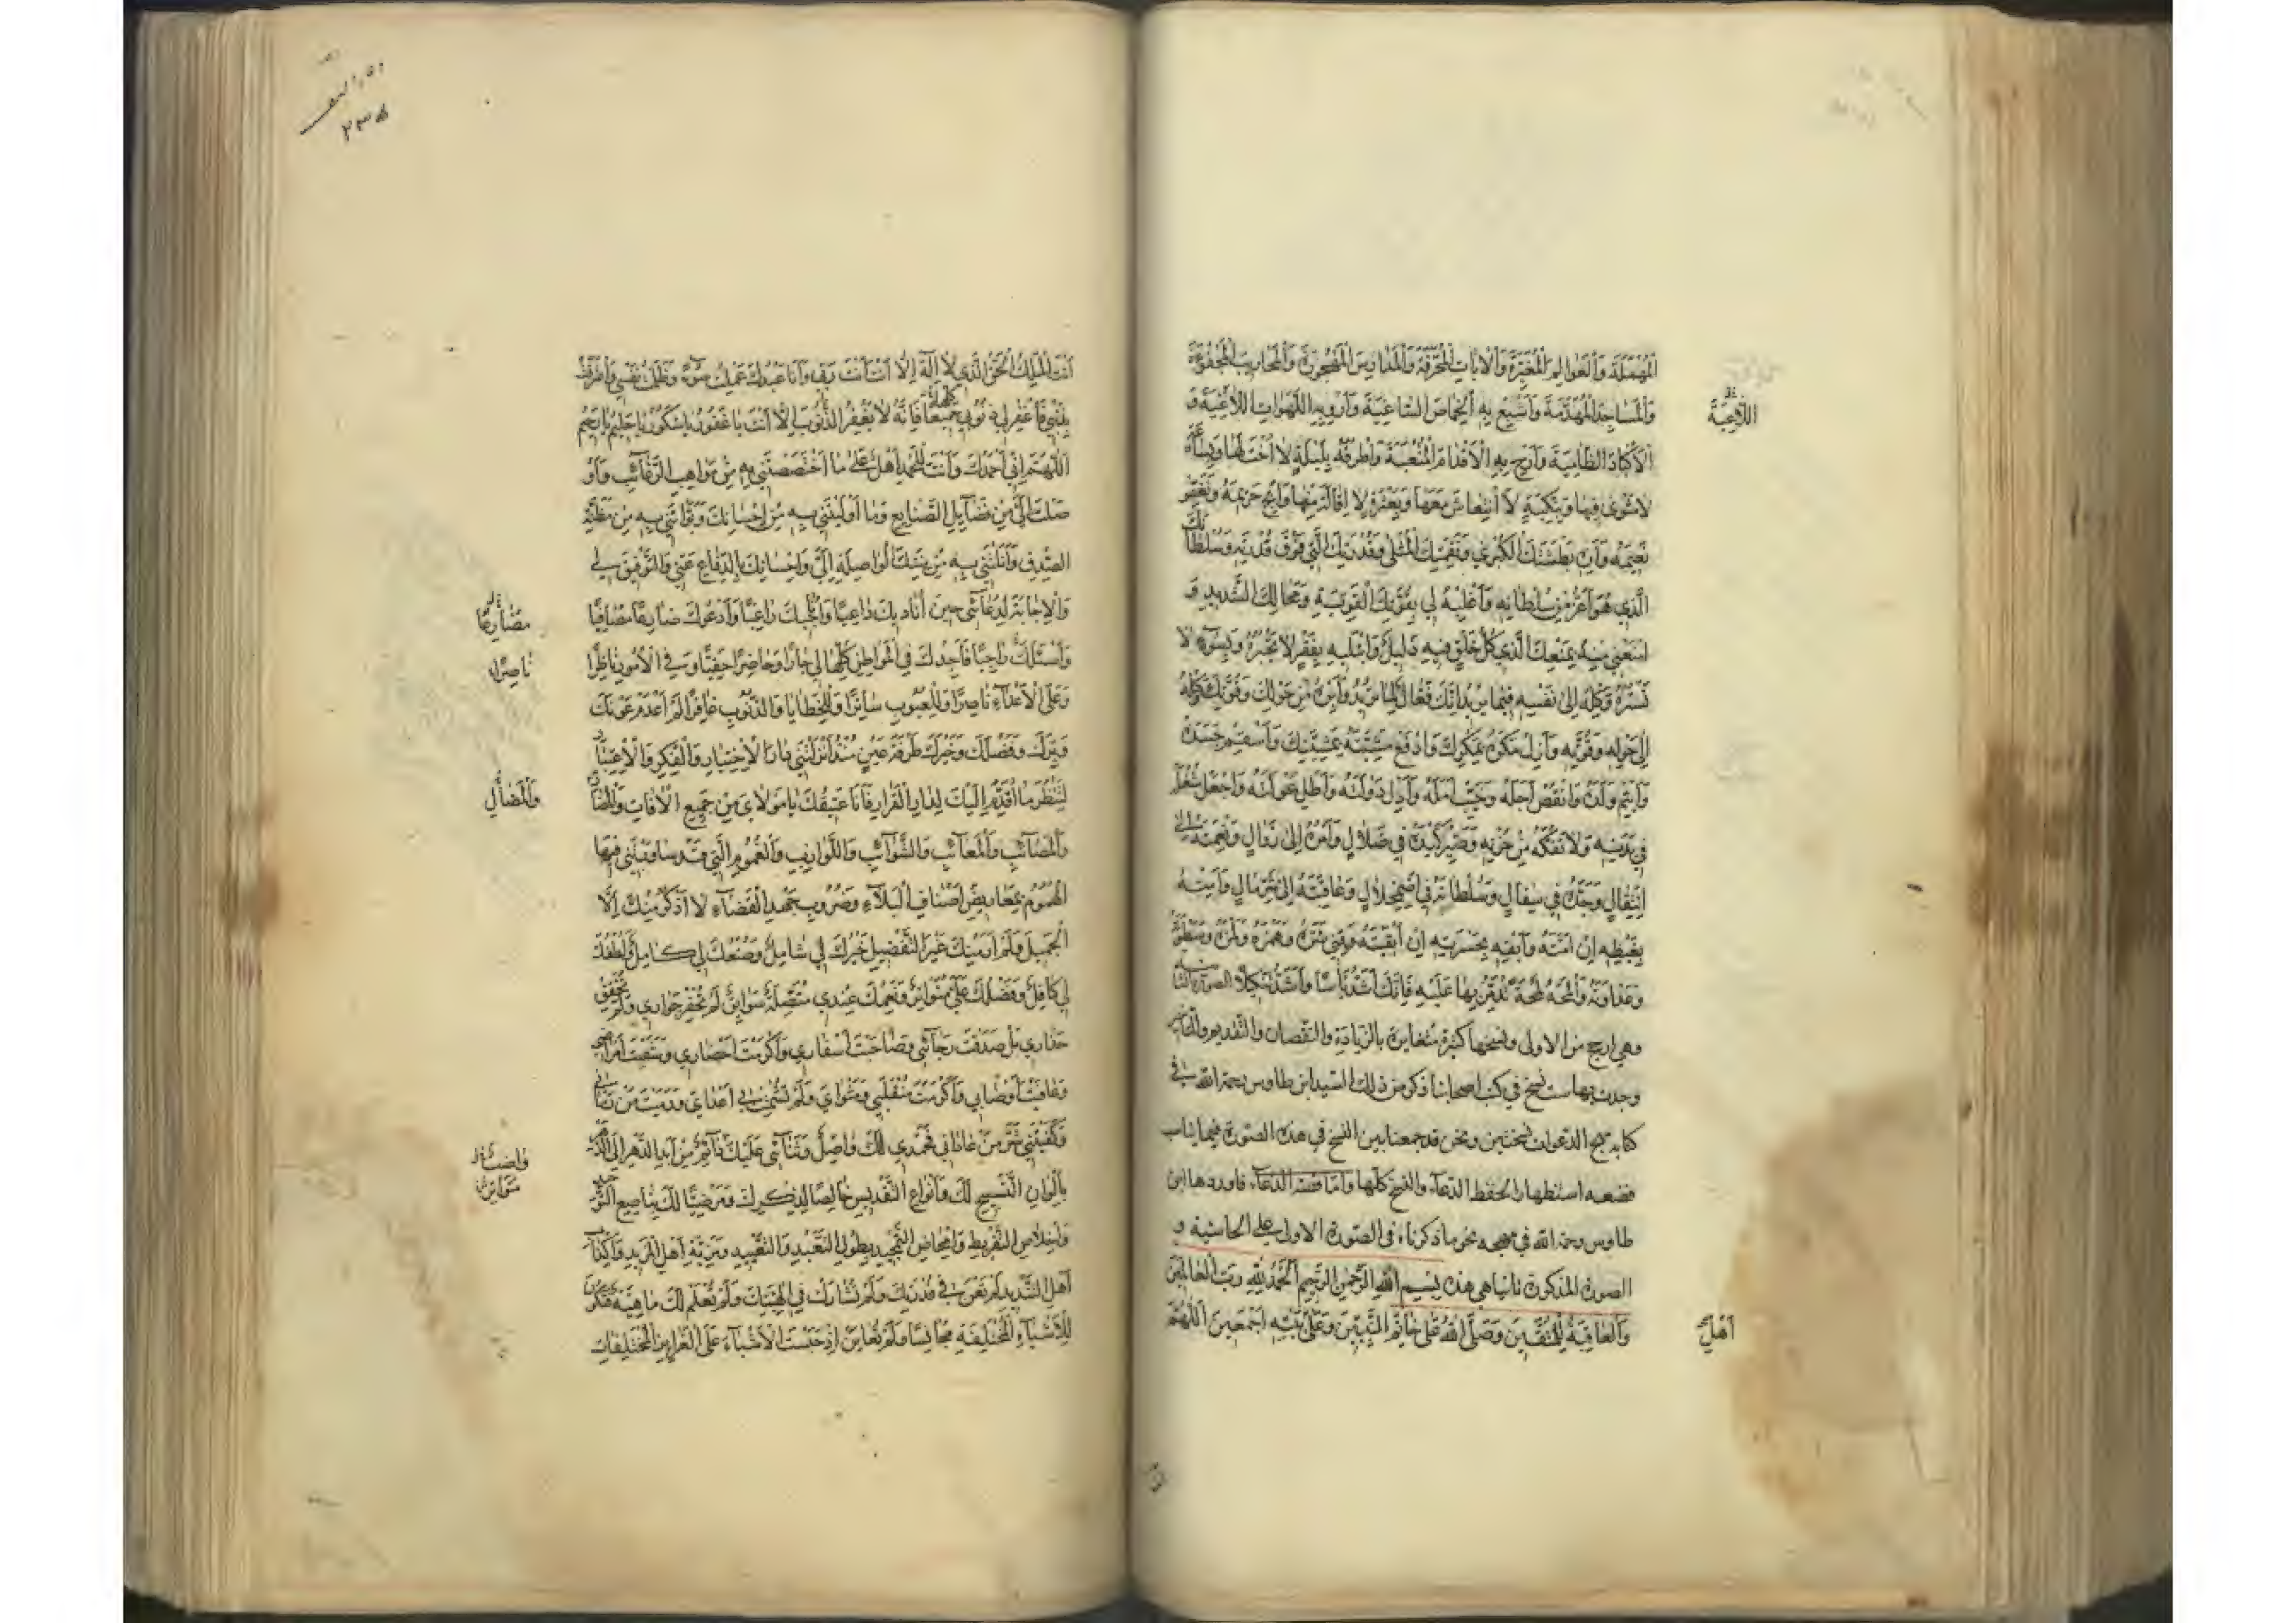 المهملة والعوالم المغبرة والآيات المحرفة والمدارس المهجورة والمحاريب المجفوة
والمساجد المهدمة وأشبع به الخماص الساغبة وأرو به اللهوات اللاغبة و
الأكباد الظامية وأرح به الأقدام المتعبة واطرقه بليلة لا أخت لها وبساعة
لا مثوى فيها وبنكبة لا انتعاش معها وبعثرة لا إقالة منها وأبح حريمه ونغص
نعيمه وأره بطشتك الكبرى ونقمتك المثلى وقدرتك التي فوق قدرته وسلطانك
الذي هو أعز من سلطانه وأغلبه لي بقوتك القوية ومحالك الشديد و
امنعني منه بمنعك الذي كل خلق فيه ذليل وابتله بفقر لا تجبره وبسوء لا
تستره وكله إلى نفسه فيما يريد إنك فعال لما تريد وأبرئه من حولك وقوتك وكله
إلى حوله وقوته وأزل مكره بمكرك وادفع مشيته بمشيتك وأسقم جسده
وأيتم ولده وانقص أجله وخيب أمله وأدل دولته وأطل عولته واجعل شغله
في بدنه ولا تفكه من حزنه وصير كيده في ضلال وأمره إلى زوال ونعمته إلى
انتقال وجده في سفال وسلطانه في اضمحلال وعاقبته إلى شر مآل وأمته
بغيظه إن أمته وأبقه بحسرته إن أبقيته وقني شره وهمزه ولمزه وسطوته
وعداوته والمحه لمحة تدمر بها عليه فإنك أشد بأسا وأشد تنكيلا الصورة الثانية
وهي ارجح من الاولى ونسخها كثيرة متغايرة بالزيادة والنقصان والتقديم والتأخير
وجدت بها ست نسخ في كتب اصحابنا ذكر من ذلك السيد ابن طاوس رحمة الله في
كتابه مهج الدعوات نسختين ونحن قد جمعنا بين النسخ في هذه الصورة فيما يناسب
وضعه استظهارا لحفظ الدعاء والنسخ كلها واما قصة الدعاء فاوردها ابن
طاوس رحمه الله في مهجه نحو ما ذكرناه في الصورة الاولى على الحاشية و
الصورة المذكورة ثانيا هي هذه بسم الله الرحمن الرحيم الحمد لله رب العالمين
والعاقبة للمتقين وصلى الله على خاتم النبيين وعلى أجمعين اللهم
أهل
أنت الملك الحق الذي لا إله إلا أنت أنت ربي وأنا عبدك عملت سوء وظلمت نفسي واعترفت
بذنبي فاغفر لي ذنوبي كلها جميعا فإنه لا يغفر الذنوب إلا أنت يا غفور يا شكور يا حليم يا رحيم
اللهم إني أحمدك وأنت للحمد أهل على ما اختصصتني به من مواهب الرغائب وأو
صلت إلي من فضايل الصنايع وما أوليتني به من إحسانك وبوأتني به من مظنة
الصدق وأنلتني به من مننك الواصلة إلي وإحسانك بالدفاع عني والتوفيق لي
والإجابة لدعائي حين أناديك داعيا وأناجيك راغبا وأدعوك ضارعا مصافيا
وأسئلك راجيا فأجدك في المواطن كلها لي جارا وحاضرا حفيا وفي الأمور ناظرا
وعلى الأعداء ناصرا وللعيوب ساترا وللخطايا والذنوب غافرا لم أعدم عونك
وبرك وفضلك وخيرك طرفة عين منذ أنزلتني دار الاختبار والفكر والاعتبار
لتنظر ما أقدم إليك لدار القرار فأنا عتيقك يا مولاي من جميع الآفات والمضار
والمصائب والمعائب والشوائب واللوازب والغموم التي قد ساورتني فيها
الهموم بمعاريض أصناف البلاء وضروب جهد القضاء لا أذكر منك إلا
الجميل ولم أر منك غير التفضيل خيرك لي شامل وصنعك لي كامل ولطفك
لي كافل وفضلك علي متواتر ونعمك عندي متصلة سوابق لم تخفر جواري ولم تحقق
حذاري بل صدقت رجائي وصاحبت أسفاري وأكرمت أحضاري وشفيت أمراضي
وعافيت أوصابي وأكرمت منقلبي ومثواي ولم تشمت بي أعدائي ورميت من رماني
وكفيتني شر من عاداني فحمدي لك واصل وثنائي عليك دائم من أبد الدهر إلى الدهر
بألوان التسبيح لك وأنواع التقديس خالصا لذكرك ومرضيا لك بناصع التوحيد
وإخلاص التفريط وإمحاض التمجيد بطول التعبد والتعديد ومزية أهل المزيد وإكذاب
أهل التنديد لم تعن في قدرتك ولم تشارك في إلهيتك ولم تعلم لك ماهية فتكون
للأشياء المختلفة مجانسا ولم تعاين إذ حبست الأشياء على الغرايز المختلفات
ناصرا